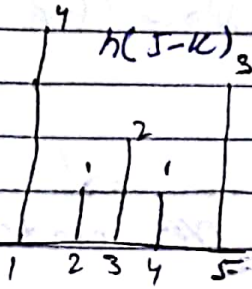 4
h(5-k)
3
2
1 1
1 2 3 4 5